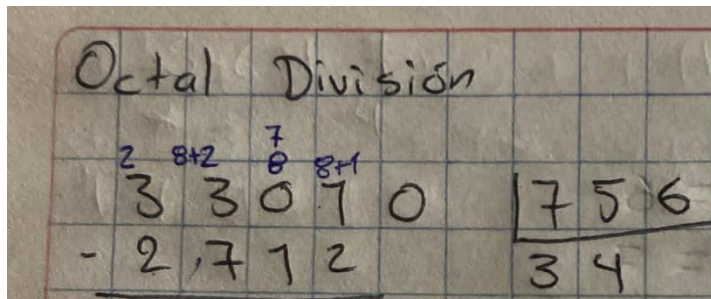 Octal División
7
2 8+2 8 8+1
3 3 0 1 0 756
- 2,712 34